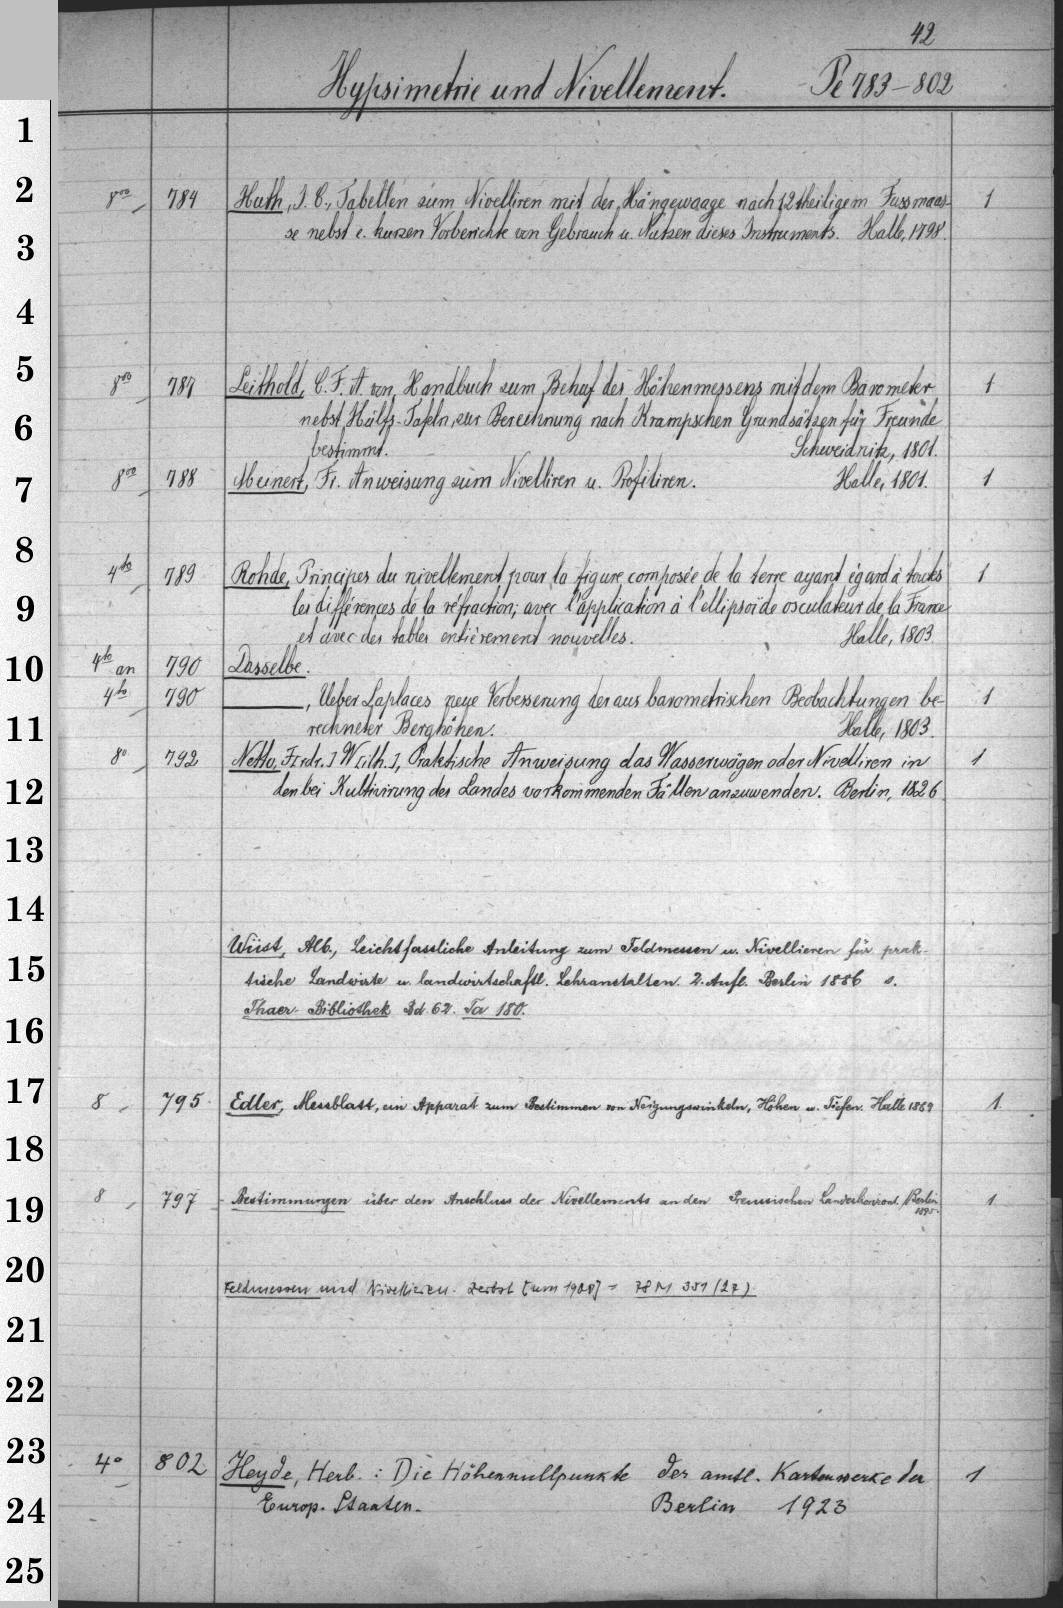 42
Hypsimetrie und Nivellement. Pe 783-802
1
2
3
4
5
6
7
8
9
10
11
12
13
14
15
16
17
18
19
20
21
22
23
24
25
8vo 784 Huth, J. C., Tabellen zum Nivelliren mit der Hängewaage nach 12theiligem Fussmaas- 1
se nebst e. kurzen Vorberichte von Gebrauch u. Nutzen dieses Instruments. Halle, 1798.
8vo 787 Leithold, C. F. A. von, Handbuch zum Behuf des Höhenmessens mit dem Barometer 1
nebst Hülfs-Tafeln, zur Berechnung nach Krampschen Grundsätzen für Freunde
bestimmt. Schweidnitz, 1801.
8vo 788 Meinert, Fr. Anweisung zum Nivelliren u. Profiliren. Halle, 1801. 1
4to 789 Rohde, Principes du nivellement pour la figure composée de la terre ayant égard à toutes 1
les différences de la réfraction; avec l'application à l'ellipsoïde osculateur de la France
et avec des tables entièrement nouvelles. Halle, 1803.
4to an 790 Dasselbe.
4to 790 ———, Ueber Laplaces neue Verbesserung der aus barometrischen Beobachtungen be- 1
rechneter Berghöhen. Halle, 1803.
8o 792 Netto, F[rdr.] W[ilh.], Praktische Anweisung das Wasserwägen oder Nivelliren in 1
den bei Kultivirung des Landes vorkommenden Fällen anzuwenden. Berlin, 1826
Wüst, Alb., Leichtfassliche Anleitung zum Feldmessen u. Nivellieren für prak-
tische Landwirte u. landwirtschaftl. Lehranstalten. 2. Aufl. Berlin 1886 s.
Thaer-Bibliothek Bd. 62. Ta 180.
8 795 Edler, Messblatt, ein Apparat zum Bestimmen von Neigungswinkeln, Höhen u. Tiefen. Halle 1869 1
8 797 Bestimmungen über den Anschluss der Nivellements an den Preussischen Landeshorizont. Berlin 1
1895.
Feldmessen und Nivellieren. Zerbst [um 1908] = 78 M 351 (27)
4o 802 Heyde, Herb.: Die Höhennullpunkte der amtl. Kartenwerke der 1
Europ. Staaten. Berlin 1923